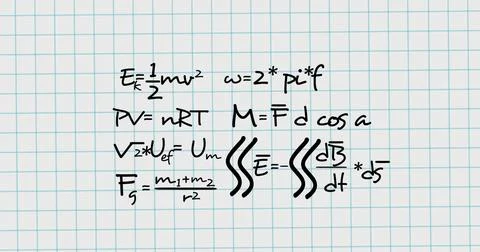 E_k = 1/2 mv² ω = 2* pi*f
PV = nRT M = F̅ d cos a
√2*U_ef = U_m ∬ E̅ = -∬ dB̅/dt *ds̅
F_g = m₁+m₂/r²